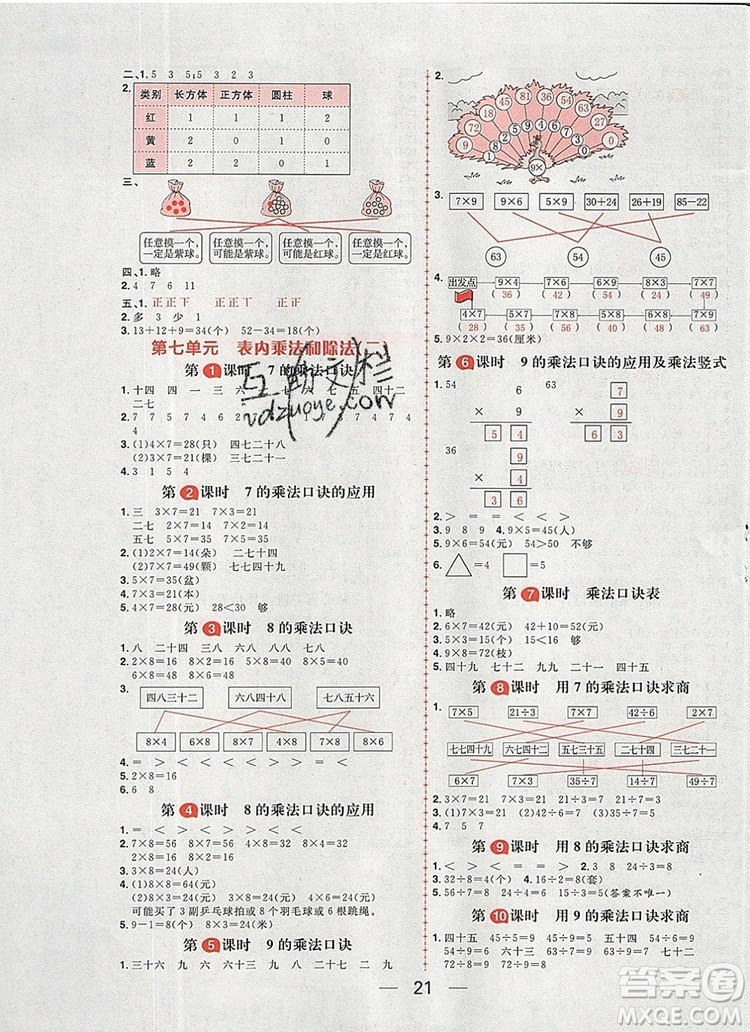 二、1.5 3 5;5 3 2 3
2.
类别 长方体 正方体 圆柱 球
红 1 1 1 2
黄 2 0 1 1
蓝 2 2 1 0
三、
任意摸一个,一定是紫球。 任意摸一个,可能是紫球。 任意摸一个,可能是红球。 任意摸一个,一定是红球。
四、1.略
2.4 7 6 11
五、1.正正下 正正丅 正正
2.多 3 少 1
3.13+12+9=34(个) 52-34=18(个)
第七单元 表内乘法和除法(二)
第1课时 7的乘法口诀
1.十四 四 一 三 六 六
二七
2.7 7 5 7 4 7 7 7 4
4
3.(1)4×7=28(只) 四七二十八
(2)3×7=21(棵) 三七二十一
4.3 1 5 4
第2课时 7的乘法口诀的应用
1.三 3×7=21 7×3=21
二七 2×7=14 7×2=14
五七 5×7=35 7×5=35
2.(1)2×7=14(朵) 二七十四
(2)7×7=49(颗) 七七四十九
3.5×7=35(盆)
4.3×7=21(本)
5.4×7=28(元) 28<30 够
第3课时 8的乘法口诀
1.八 二十四 三八 六八 八八 七八
2.2×8=16 8×2=16 二八十六
6×8=48 8×6=48 六八四十八
3.
四八三十二 六八四十八 七八五十六
8×4 6×8 8×7 4×8 8×6 7×8
4.> = < > < >
5.2×8=16
6.2×8=16
第4课时 8的乘法口诀的应用
1.= < > > > < < <
2.7×8=56 8×7=56 七八五十六
3×8=24 8×3=24 三八二十四
3.3×8=24(人)
4.(1)8×8=64(元)
(2)8×3=24(元) 3×8=24(元) 4×6=24(元)
可能买了3副乒乓球拍或8个羽毛球或6根跳绳。
5.9-1=8(个) 8×3=24(米)
第5课时 9的乘法口诀
1.三十六 九 六 九 八 七 九 二 九
2.
0 9 72 18 45 81 36 27 54 63 0
9×
3.
7×9 9×6 5×9 30+24 26+19 85-22
63 54 45
4.
出发点 9×4 7×6 6×9 8×3 7×7
(36) (42) (54) (24) (49)
4×7 5×7 9×2 6×8 8×4
(28) (35) (18) (48) (32)
5.9×2×2=36(厘米)
第6课时 9的乘法口诀的应用及乘法竖式
1.54 63
6 9
× 9 × 7
5 4 6 3
36
9
× 4
3 6
2.> = = < < <
3.9 8 9 4.9×5=45(人)
5.9×6=54(元) 54>50 不够
6.
第7课时 乘法口诀表
1.略
2.6×7=42(元) 42+10=52(元)
3.5×3=15(个) 6×9=54(个) 够
4.9×8=72(枝)
5.四十九 三七 六七 九九 二十一 四十五
第8课时 用7的乘法口诀求商
1.
7×5 21÷3 7×7 42÷6 2×7
七七四十九 六七四十二 五七三十五 二七十四 三七二十一
6×7 7×3 35÷7 14÷7 49÷7
2.3×7=21 7×3=21 21÷3=7 21÷7=3
3.(1)7×6=42(元) (2)35÷5=7(个)
4.7 5
第9课时 用8的乘法口诀求商
1.< > < = > 2.3 24÷8=3
3.32÷8=4(个) 4.16÷8=2(套)
5.56÷7=8(个) 56÷8=7(个)(答案不唯一)
第10课时 用9的乘法口诀求商
1.四十五 45÷5=9 45÷9=5 五十四
54÷6=9 54÷9=6 63÷7=9 63÷9=7
72÷8=9 72÷9=8
21
互助文栏
vdzuoye.com
答案圈
MXQE.COM